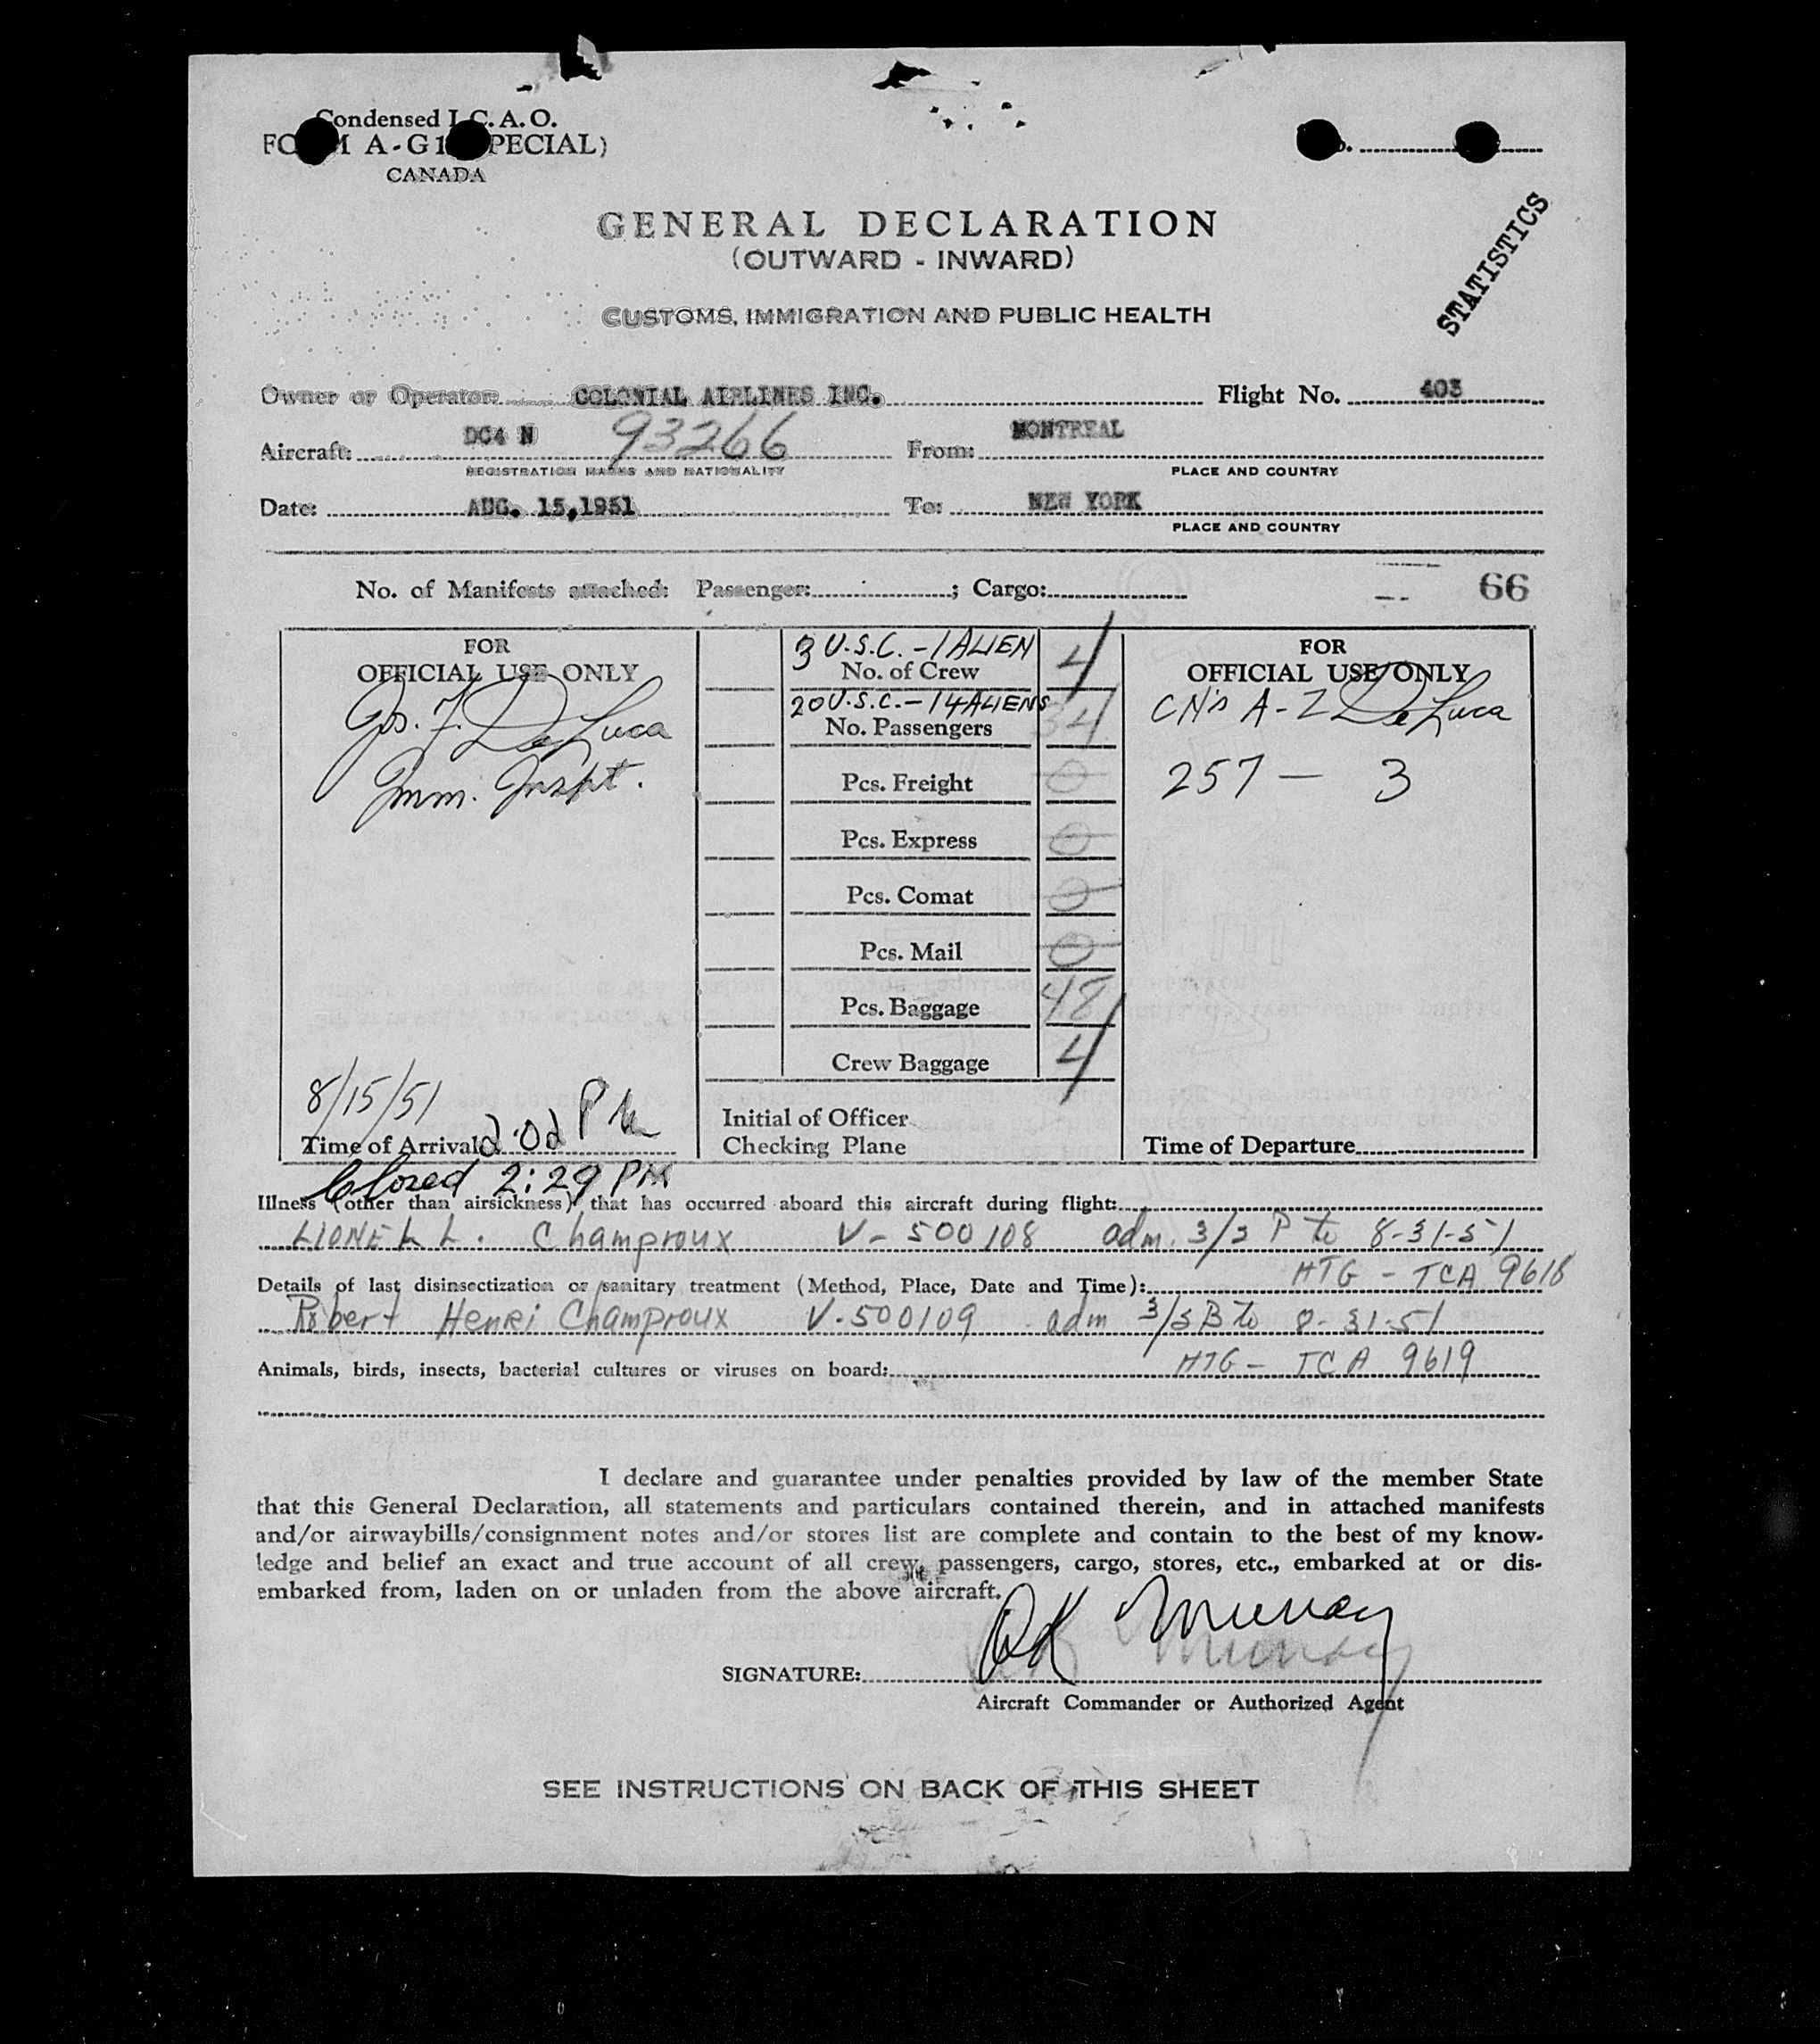 Condensed I.C.A.O.
FORM A-G1 (SPECIAL)
CANADA
STATISTICS
GENERAL DECLARATION
(OUTWARD - INWARD)
CUSTOMS, IMMIGRATION AND PUBLIC HEALTH
Owner or Operator: COLONIAL AIRLINES INC. Flight No. 403
Aircraft: DC4 N 93266 From: MONTREAL
REGISTRATION MARKS AND NATIONALITY PLACE AND COUNTRY
Date: AUG. 15, 1951 To: NEW YORK
PLACE AND COUNTRY
No. of Manifests attached: Passenger: ; Cargo: 66
FOR
OFFICIAL USE ONLY
Jos. F. De Luca
Imm. Inspt.
8/15/51
Time of Arrival 2:02 PM
Closed 2:29 PM
3 U.S.C. - 1 ALIEN
No. of Crew 4
20 U.S.C. - 14 ALIENS
No. Passengers 34
Pcs. Freight 0
Pcs. Express 0
Pcs. Comat 0
Pcs. Mail 0
Pcs. Baggage 48
Crew Baggage 4
Initial of Officer
Checking Plane
FOR
OFFICIAL USE ONLY
CN's A-Z De Luca
257 - 3
Time of Departure
Illness (other than airsickness) that has occurred aboard this aircraft during flight:
LIONEL L. Champroux V-500108 adm. 3/3 P to 8-31-51
HTG - TCA 9618
Details of last disinsectization or sanitary treatment (Method, Place, Date and Time):
Robert Henri Champroux V-500109 adm 3/3 B to 8-31-51
HTG - TCA 9619
Animals, birds, insects, bacterial cultures or viruses on board:
I declare and guarantee under penalties provided by law of the member State
that this General Declaration, all statements and particulars contained therein, and in attached manifests
and/or airwaybills/consignment notes and/or stores list are complete and contain to the best of my know-
ledge and belief an exact and true account of all crew, passengers, cargo, stores, etc., embarked at or dis-
embarked from, laden on or unladen from the above aircraft.
SIGNATURE: Murray
Aircraft Commander or Authorized Agent
SEE INSTRUCTIONS ON BACK OF THIS SHEET